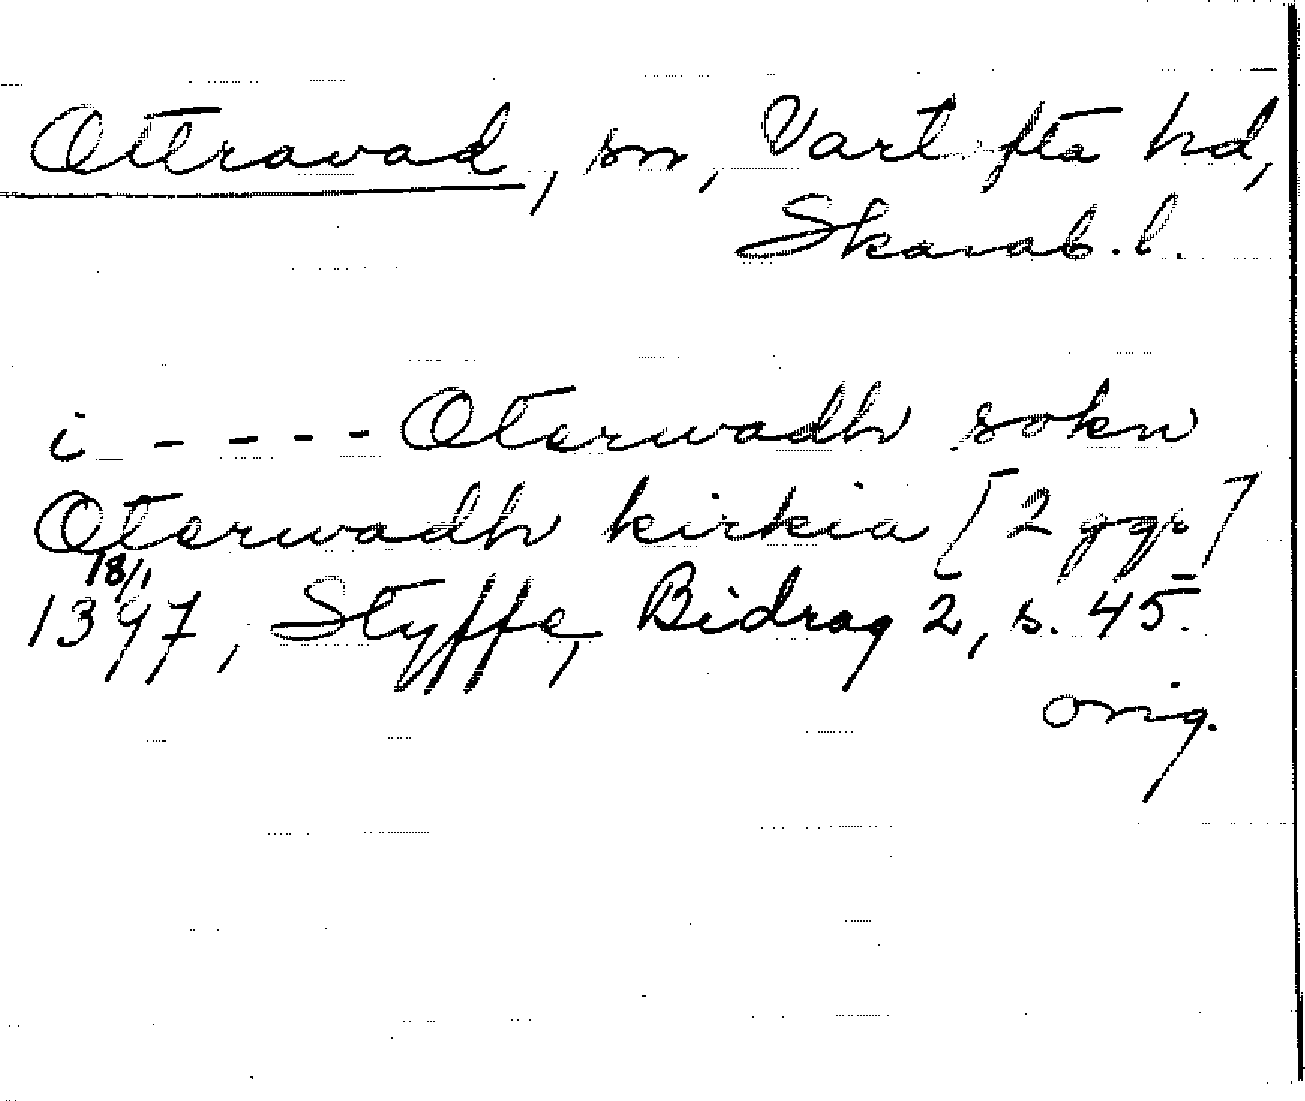 Ottravad, sn, Vartofta hd,
Skarab. l.
i - - - - Oterwadh sokn
Oterwadh kirkia [2 ggr]
18/1
1397, Styffe, Bidrag 2, s. 45.
orig.